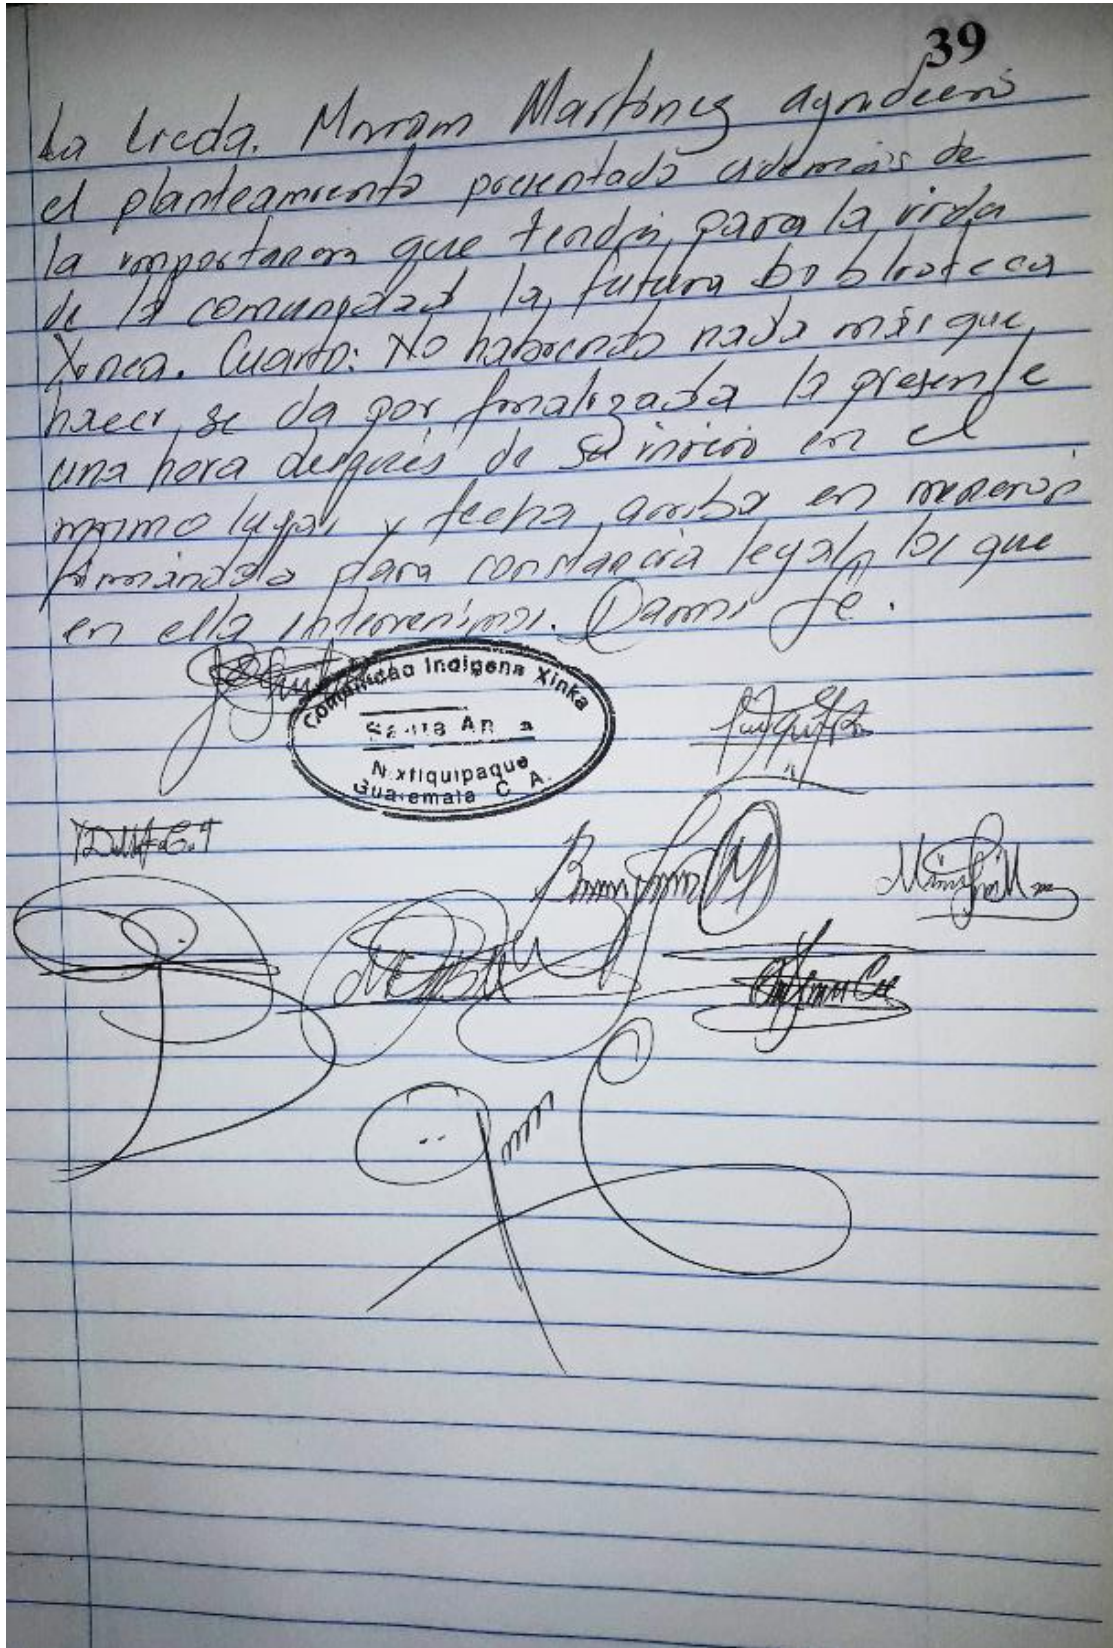 39
La Licda. Miriam Martínez agradeció
el planteamiento presentado además de
la importancia que tendrá para la vida
de la comunidad la futura biblioteca
Xinca. Cuarto: No habiendo nada más que
hacer se da por finalizada la presente
una hora después de su inicio en el
mismo lugar y fecha arriba en
firmándola para constancia legal los que
en ella intervenimos. Damos fé.
Comunidad Indigena Xinka
Santa Ana
Nixtiquipaque
Guatemala C. A.